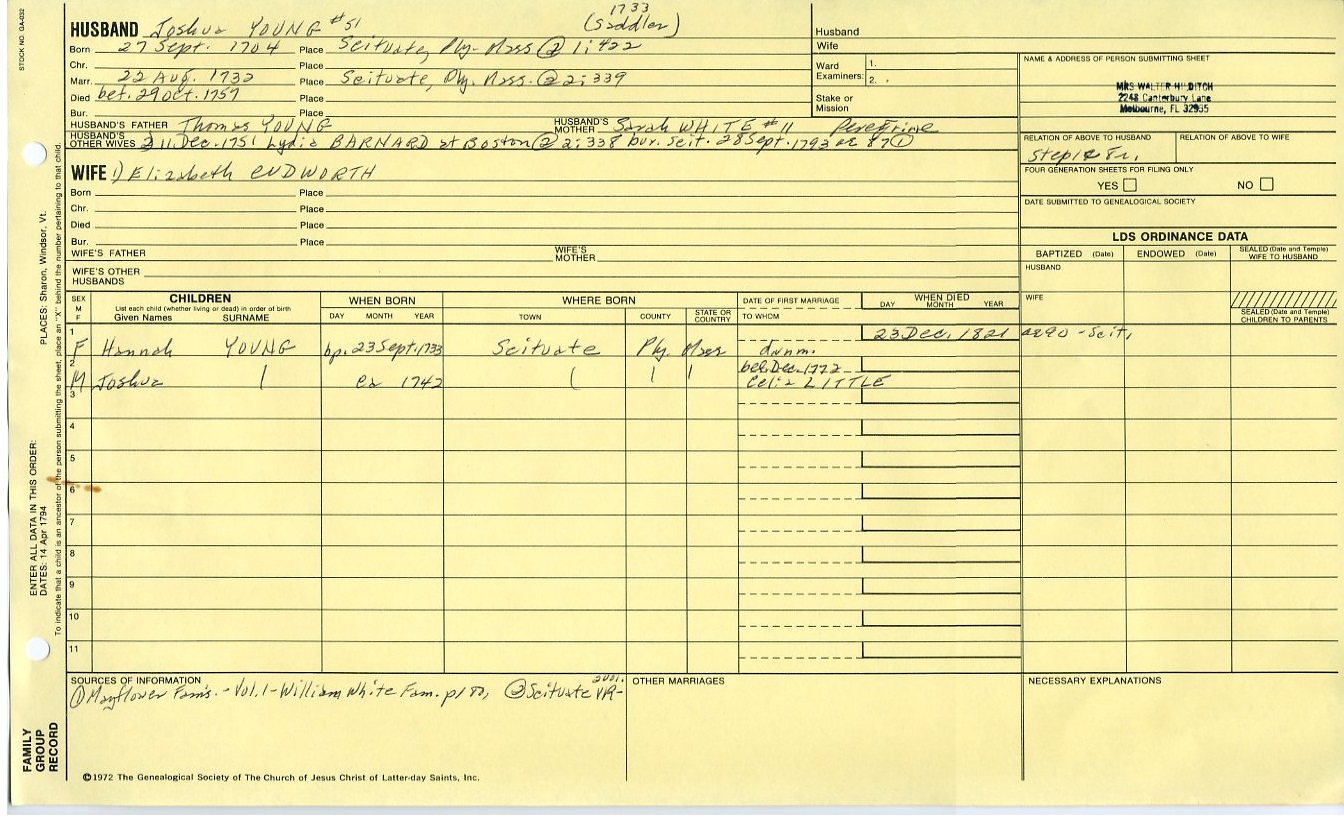 STOCK NO. GA-032
1733
HUSBAND Joshua YOUNG #51 (Saddler)
Born 27 Sept. 1704 Place Scituate, Ply. Mass @ 1:422
Chr. Place
Marr. 22 Aug. 1732 Place Scituate, Ply. Mass. @ 2:339
Died bet. 29 Oct. 1757 Place
Bur. Place
HUSBAND'S FATHER Thomas YOUNG HUSBAND'S MOTHER Sarah WHITE #11 Peregrine
HUSBAND'S OTHER WIVES 2 11. Dec. 1751 Lydia BARNARD at Boston ② 2:338 bur. Scit. 28 Sept. 1793 ae 87 ①
WIFE 1) Elizabeth CUDWORTH
Born Place
Chr. Place
Died Place
Bur. Place
WIFE'S FATHER WIFE'S MOTHER
WIFE'S OTHER HUSBANDS
Husband
Wife
Ward Examiners: 1.
2.
Stake or Mission
NAME & ADDRESS OF PERSON SUBMITTING SHEET
MRS WALTER HILDITCH
2248 Canterbury Lane
Melbourne, FL 32935
RELATION OF ABOVE TO HUSBAND RELATION OF ABOVE TO WIFE
FOUR GENERATION SHEETS FOR FILING ONLY
YES NO
DATE SUBMITTED TO GENEALOGICAL SOCIETY
LDS ORDINANCE DATA
BAPTIZED (Date) ENDOWED (Date) SEALED (Date and Temple) WIFE TO HUSBAND
HUSBAND
WIFE
SEALED (Date and Temple) CHILDREN TO PARENTS
SEX M F
CHILDREN
List each child (whether living or dead) in order of birth
Given Names SURNAME
WHEN BORN
DAY MONTH YEAR
WHERE BORN
TOWN COUNTY STATE OR COUNTRY
DATE OF FIRST MARRIAGE
TO WHOM
WHEN DIED
DAY MONTH YEAR
1 23 Dec. 1821 ae 90 - Scit.
F Hannah YOUNG bp. 23 Sept. 1733 Scituate Ply. Mass d.unm.
2 bef. Dec. 1772
M Joshua ca 1742 Celia LITTLE
3
4
5
6
7
8
9
10
11
SOURCES OF INFORMATION
① Mayflower Fam's. - Vol. 1 - William White Fam. ② Scituate VR-
OTHER MARRIAGES
NECESSARY EXPLANATIONS
©1972 The Genealogical Society of The Church of Jesus Christ of Latter-day Saints, Inc.
FAMILY GROUP RECORD
ENTER ALL DATA IN THIS ORDER:
DATES: 14 Apr 1794
PLACES: Sharon, Windsor, Vt.
To indicate that a child is an ancestor of the person submitting the sheet, place an "X" behind the number pertaining to that child.